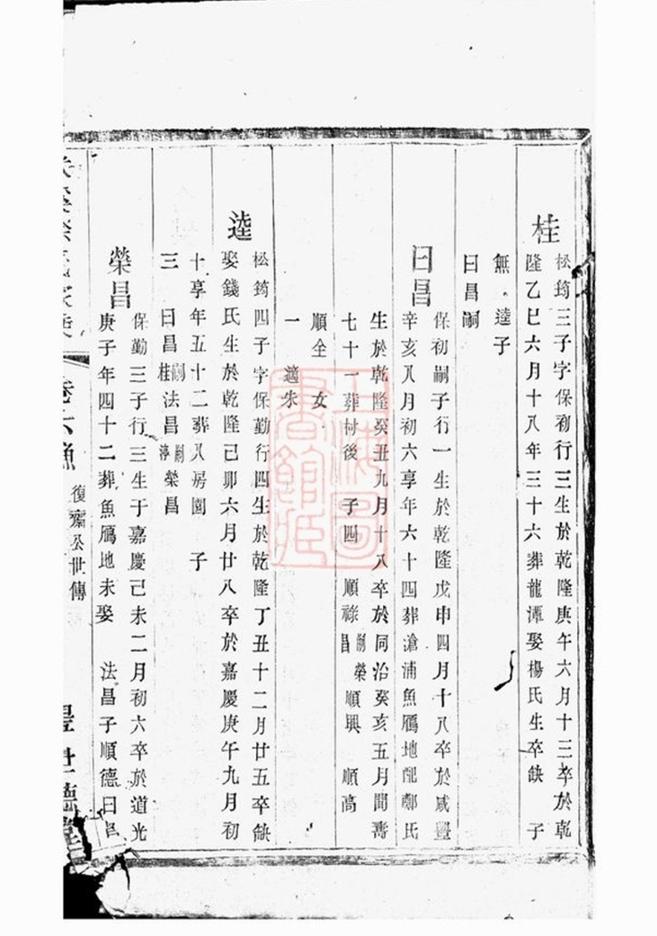 桂
松筠三子字保初行三生於乾隆庚午六月十三卒於乾
隆乙巳六月十八年三十六葬龍潭娶楊氏生卒缺 子
無 逵子
曰昌嗣
曰昌
保初嗣子行一生於乾隆戊申四月十八卒於咸豐
辛亥八月初六享年六十四葬滄浦魚鴈地配鄭氏
生於乾隆癸丑九月十八卒於同治癸亥五月間壽
七十一葬 後 子四 順祿嗣榮昌 順興 順高
順全 女
一 適朱
逵
松筠四子字保勤行四生於乾隆丁丑十二月廿五卒缺
娶錢氏生於乾隆己卯六月廿八卒於嘉慶庚午九月初
十享年五十二葬八房園 子
三 曰昌嗣桂 法昌 榮昌
榮昌
保勤三子行三生于嘉慶己未二月初六卒於道光
庚子年四十二葬魚鴈地未娶 法昌子順德曰昌
卷六
復齋公世傳
世德
上海圖書館藏